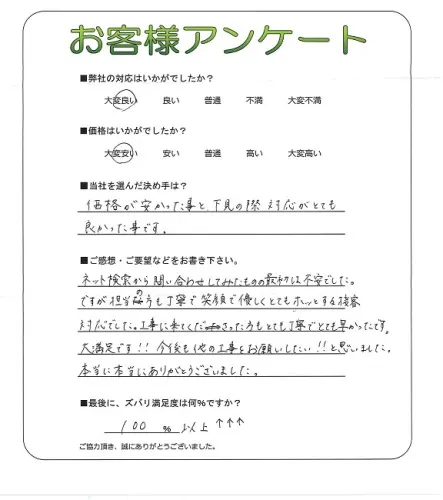 お客様アンケート
■弊社の対応はいかがでしたか？
大変良い 良い 普通 不満 大変不満
■価格はいかがでしたか？
大変安い 安い 普通 高い 大変高い
■当社を選んだ決め手は？
価格が安かった事と、下見の際 対応がとても
良かった事です。
■ご感想・ご要望などをお書き下さい。
ネット検索から問い合わせしてみたものの最初は不安でした。
ですが担当の方も丁寧で笑顔で優しくとてもホッとする接客
対応でした。工事に来てくださった方もとても丁寧でとても早かったです。
大満足です!! 今後も他の工事をお願いしたい!!と思いました。
本当に本当にありがとうございました。
■最後に、ズバリ満足度は何%ですか？
100 % 以上 ↑↑↑
ご協力頂き、誠にありがとうございました。